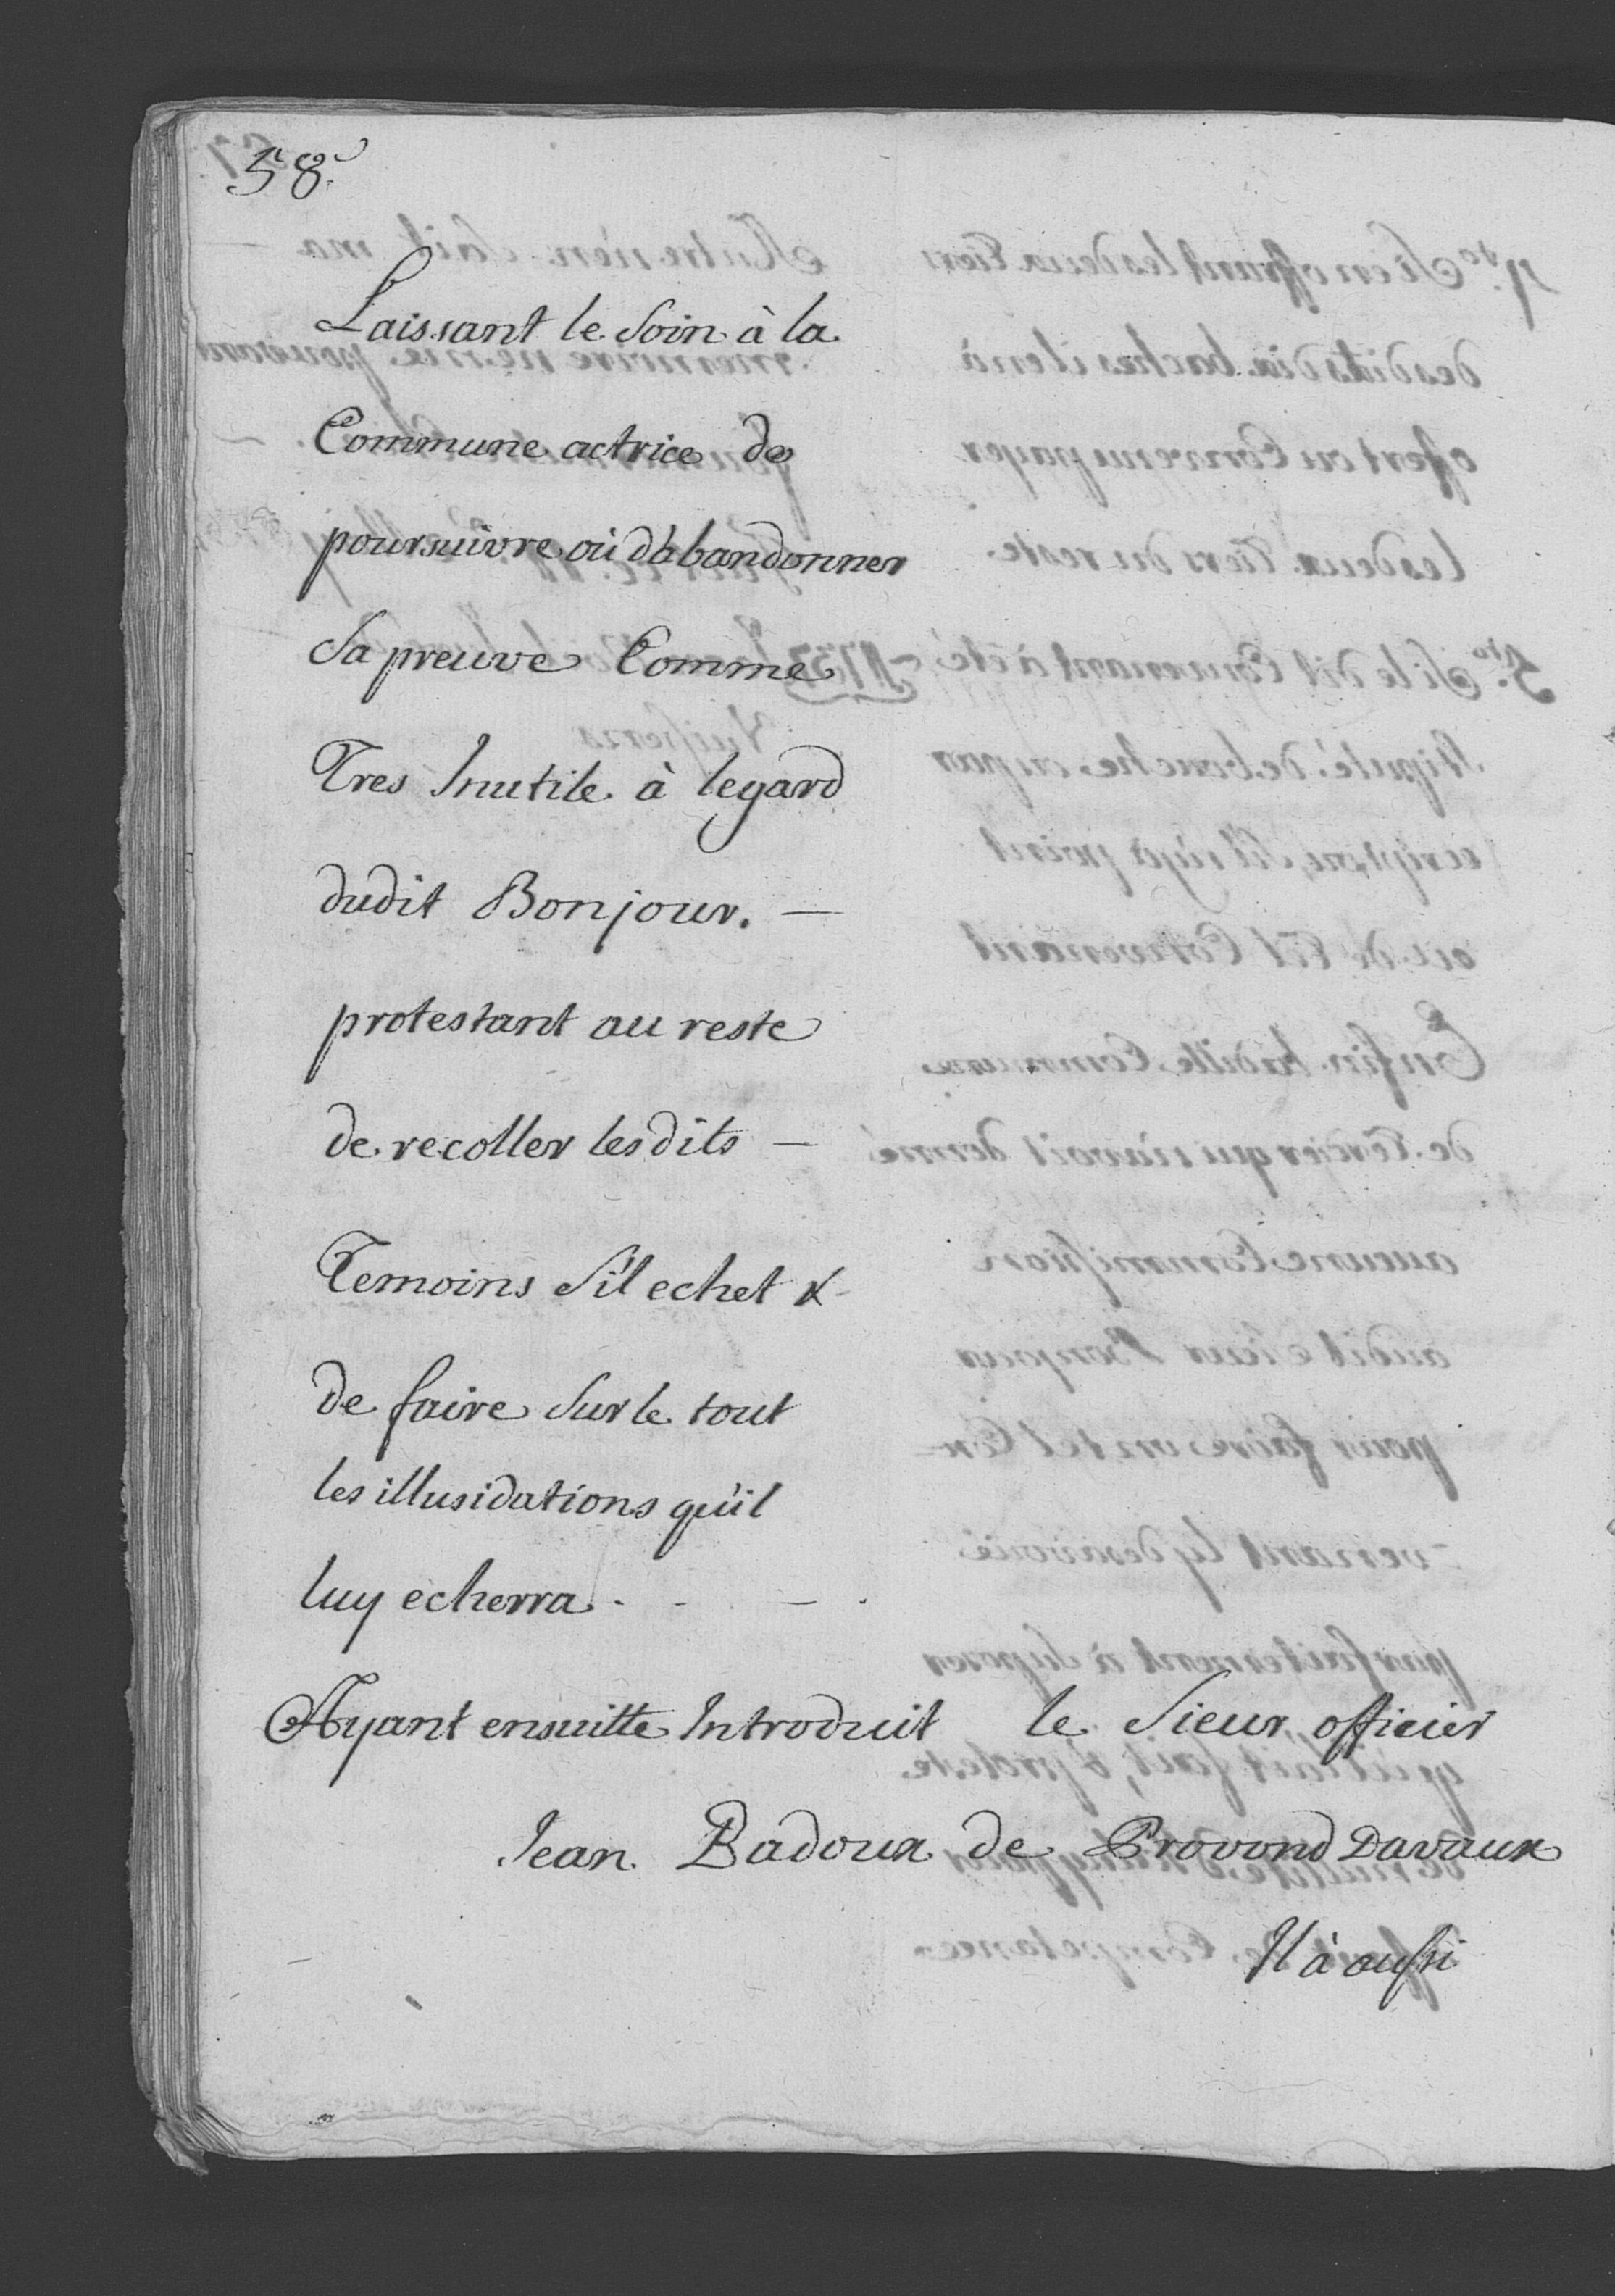 58.
Laissant le Soin à la
Commune actrice de
poursuivre où d'abandonner
Sa preuve Comme
Tres Inutile à legard
dudit Bonjour. —
protestant au reste
de recoller lesdits —
Temoins S'il echet &
de faire Sur le tout
les illusidations qu'il
luy echerra. - - — .
Ayant ensuitte Introduit le Sieur officier
Jean Badoux de Provond Davaux
Il à aussi